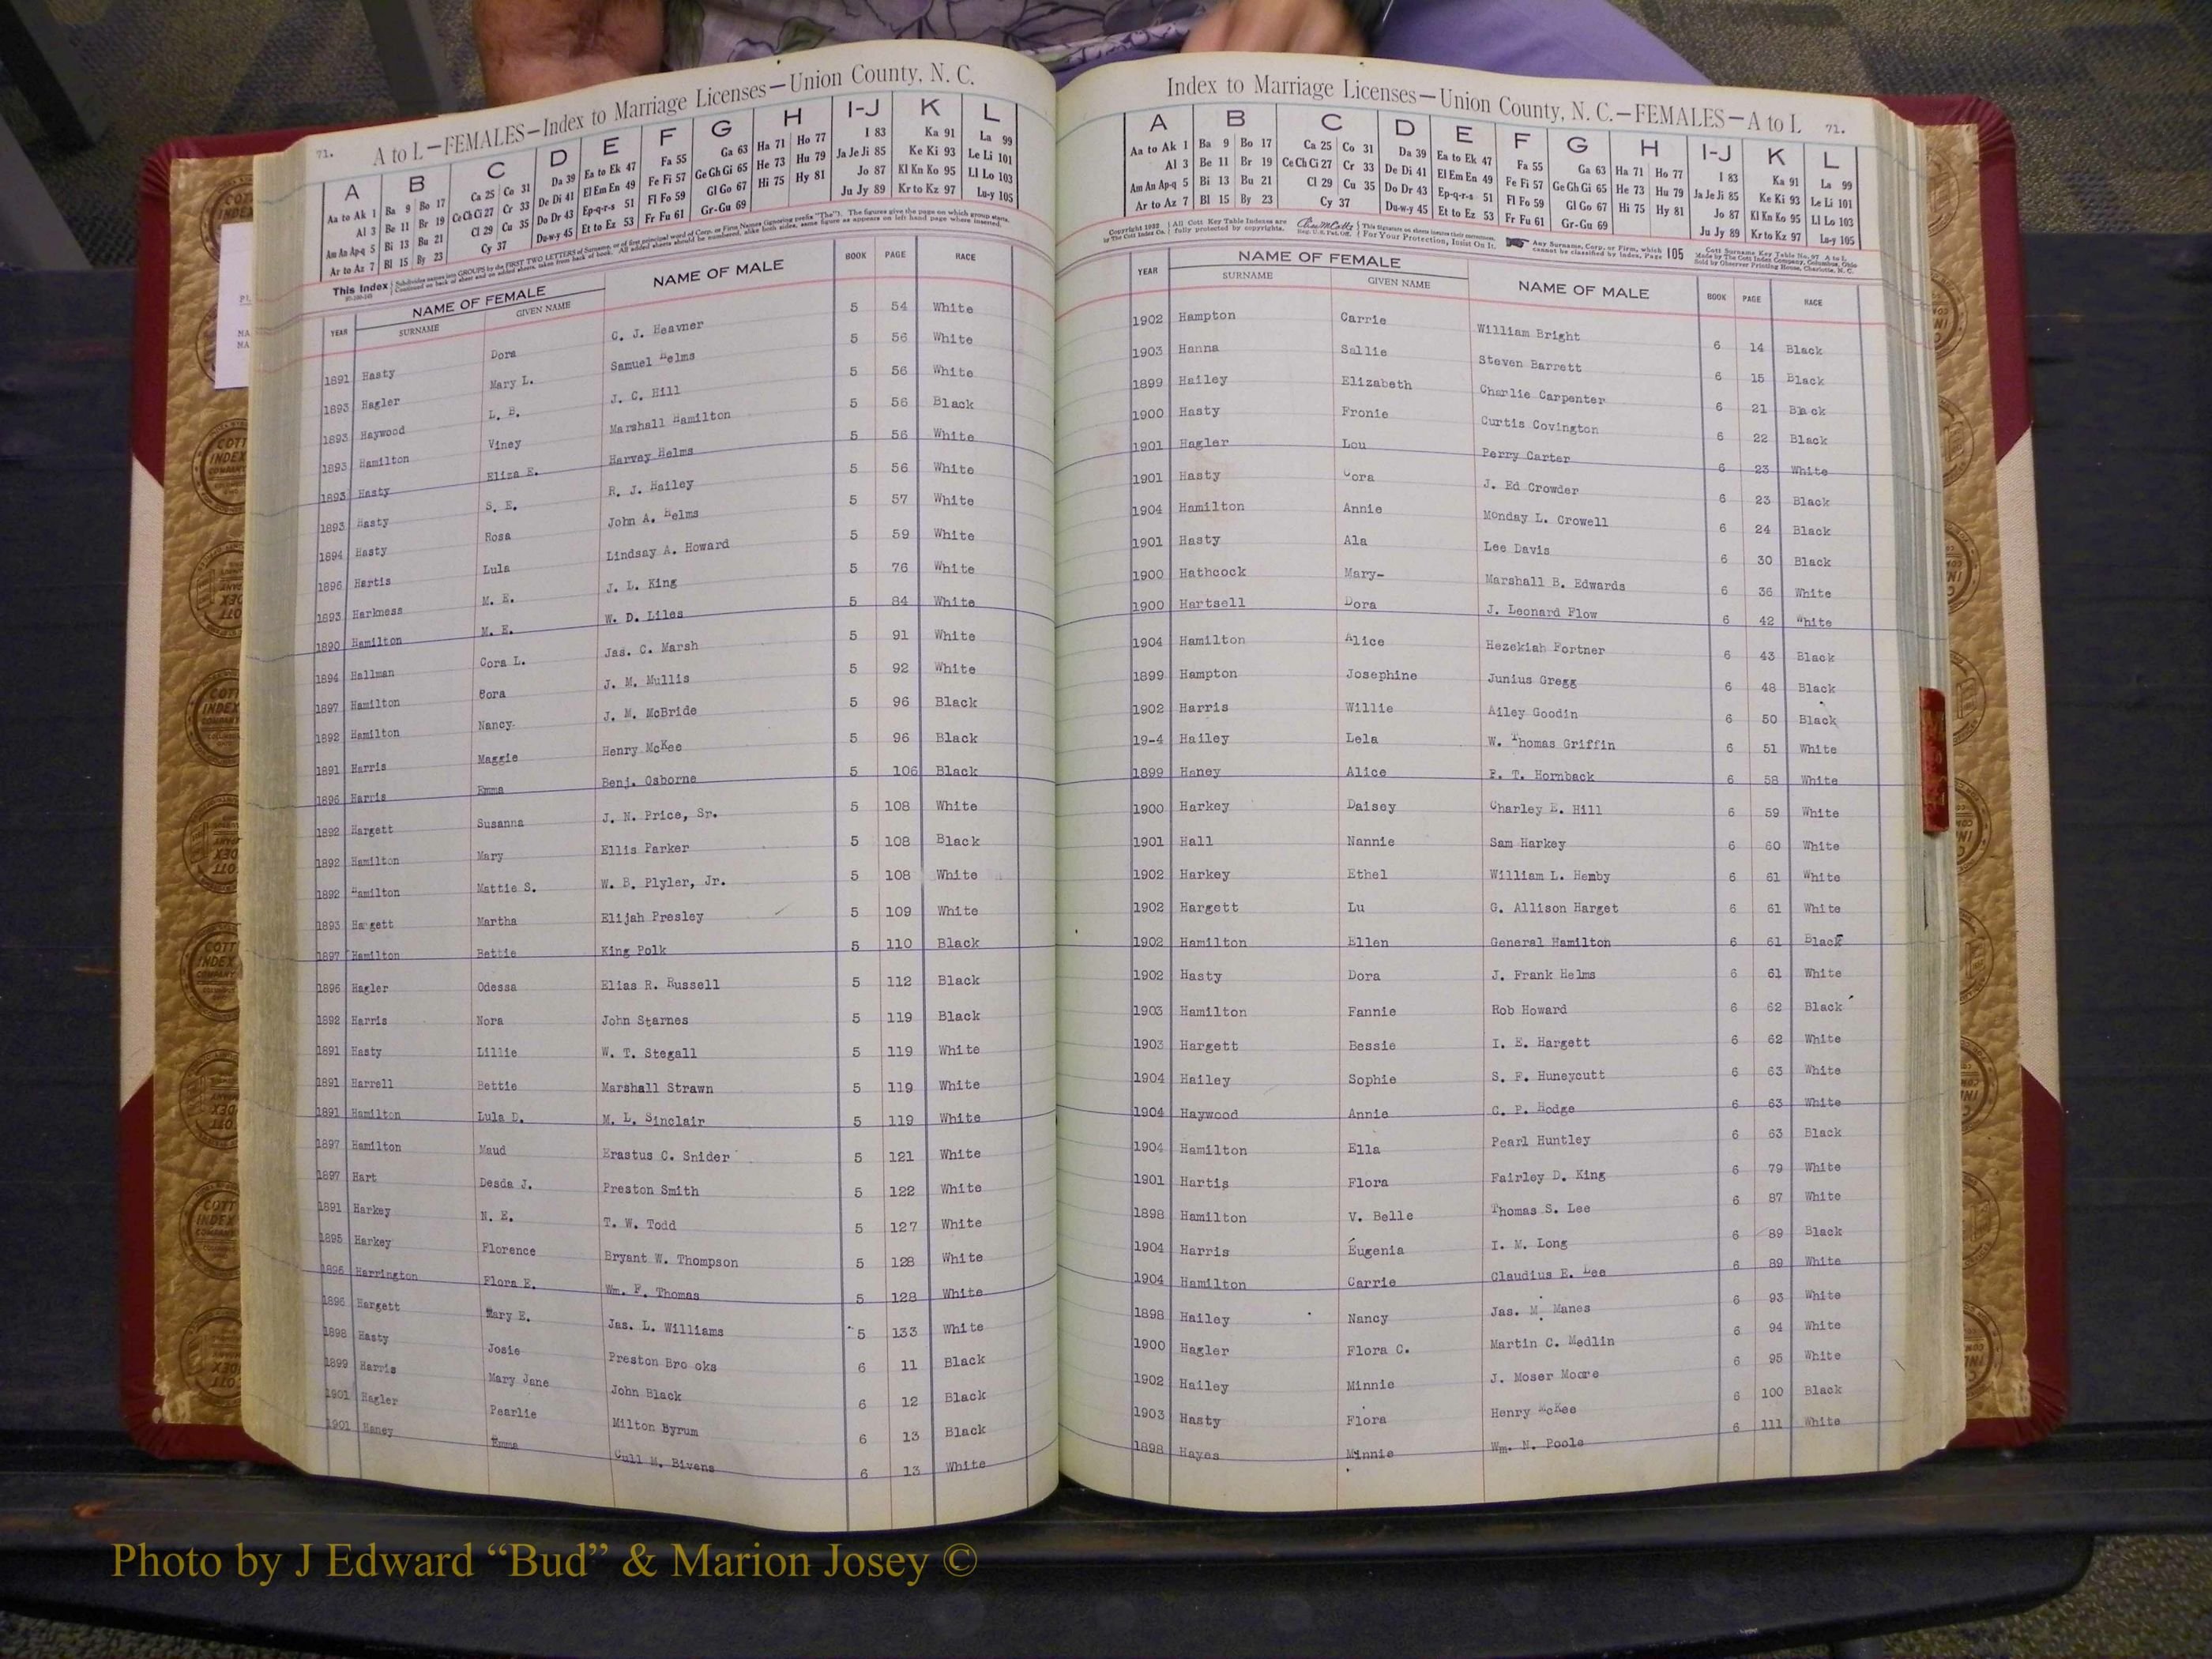 A to L—FEMALES—Index to Marriage Licenses—Union County, N. C.
71.
A B C D E F G H I-J K L
Aa to Ak 1 Ba 9 Bo 17 Ca 25 Co 31 Da 39 Ea to Ek 47 Fa 55 Ga 63 Ha 71 Ho 77 I 83 Ka 91 La 99
Al 3 Be 11 Br 19 Ce Ch Ci 27 Cr 33 De Di 41 El Em En 49 Fe Fi 57 Ge Gh Gi 65 He 73 Hu 79 Ja Je Ji 85 Ke Ki 93 Le Li 101
Am An Ap-q 5 Bi 13 Bu 21 Cl 29 Cu 35 Do Dr 43 Ep-q-r-s 51 Fl Fo 59 Gl Go 67 Hi 75 Hy 81 Jo 87 Kl Kn Ko 95 Ll Lo 103
Ar to Az 7 Bl 15 By 23 Cy 37 Du-w-y 45 Et to Ez 53 Fr Fu 61 Gr-Gu 69 Ju Jy 89 Kr to Kz 97 Lu-y 105
This Index
YEAR NAME OF FEMALE NAME OF MALE BOOK PAGE RACE
SURNAME GIVEN NAME
1891 Hasty Dora C. J. Heavner 5 54 White
1893 Hagler Mary L. Samuel Helms 5 56 White
1893 Haywood L. B. J. C. Hill 5 56 White
1893 Hamilton Viney Marshall Hamilton 5 56 Black
1893 Hasty Eliza E. Harvey Helms 5 56 White
1893 Hasty S. E. R. J. Hailey 5 56 White
1894 Hasty Rosa John A. Helms 5 57 White
1896 Hartis Lula Lindsay A. Howard 5 59 White
1893 Harkness M. E. J. L. King 5 76 White
1890 Hamilton M. E. W. D. Liles 5 84 White
1894 Hallman Cora L. Jas. C. Marsh 5 91 White
1897 Hamilton Cora J. M. Mullis 5 92 White
1892 Hamilton Nancy J. M. McBride 5 96 Black
1891 Harris Maggie Henry McKee 5 96 Black
1896 Harris Emma Benj. Osborne 5 106 Black
1892 Hargett Susanna J. N. Price, Sr. 5 108 White
1892 Hamilton Mary Ellis Parker 5 108 Black
1892 Hamilton Mattie S. W. B. Plyler, Jr. 5 108 White
1893 Hargett Martha Elijah Presley 5 109 White
1897 Hamilton Bettie King Polk 5 110 Black
1896 Hagler Odessa Elias R. Russell 5 112 Black
1892 Harris Nora John Starnes 5 119 Black
1891 Hasty Lillie W. T. Stegall 5 119 White
1891 Harrell Bettie Marshall Strawn 5 119 White
1891 Hamilton Lula D. M. L. Sinclair 5 119 White
1897 Hamilton Maud Erastus C. Snider 5 121 White
1897 Hart Desda J. Preston Smith 5 122 White
1891 Harkey N. E. T. W. Todd 5 127 White
1895 Harkey Florence Bryant W. Thompson 5 128 White
1896 Harrington Flora E. Wm. F. Thomas 5 128 White
1896 Hargett Mary E. Jas. L. Williams 5 133 White
1898 Hasty Josie Preston Bro oks 6 11 Black
1899 Harris Mary Jane John Black 6 12 Black
1901 Hagler Pearlie Milton Byrum 6 13 Black
1901 Haney Emma Cull M. Bivens 6 13 White
Index to Marriage Licenses—Union County, N. C.—FEMALES—A to L 71.
A B C D E F G H I-J K L
Aa to Ak 1 Ba 9 Bo 17 Ca 25 Co 31 Da 39 Ea to Ek 47 Fa 55 Ga 63 Ha 71 Ho 77 I 83 Ka 91 La 99
Al 3 Be 11 Br 19 Ce Ch Ci 27 Cr 33 De Di 41 El Em En 49 Fe Fi 57 Ge Gh Gi 65 He 73 Hu 79 Ja Je Ji 85 Ke Ki 93 Le Li 101
Am An Ap-q 5 Bi 13 Bu 21 Cl 29 Cu 35 Do Dr 43 Ep-q-r-s 51 Fl Fo 59 Gl Go 67 Hi 75 Hy 81 Jo 87 Kl Kn Ko 95 Ll Lo 103
Ar to Az 7 Bl 15 By 23 Cy 37 Du-w-y 45 Et to Ez 53 Fr Fu 61 Gr-Gu 69 Ju Jy 89 Kr to Kz 97 Lu-y 105
YEAR NAME OF FEMALE NAME OF MALE BOOK PAGE RACE
SURNAME GIVEN NAME
1902 Hampton Carrie William Bright 6 14 Black
1903 Hanna Sallie Steven Barrett 6 15 Black
1899 Hailey Elizabeth Charlie Carpenter 6 21 Black
1900 Hasty Fronie Curtis Covington 6 22 Black
1901 Hagler Lou Perry Carter 6 23 White
1901 Hasty Cora J. Ed Crowder 6 23 Black
1904 Hamilton Annie Monday L. Crowell 6 24 Black
1901 Hasty Ala Lee Davis 6 30 Black
1900 Hathcock Mary- Marshall B. Edwards 6 36 White
1900 Hartsell Dora J. Leonard Flow 6 42 White
1904 Hamilton Alice Hezekiah Fortner 6 43 Black
1899 Hampton Josephine Junius Gregg 6 48 Black
1902 Harris Willie Ailey Goodin 6 50 Black
19-4 Hailey Lela W. Thomas Griffin 6 51 White
1899 Haney Alice P. T. Hornback 6 58 White
1900 Harkey Daisey Charley E. Hill 6 59 White
1901 Hall Nannie Sam Harkey 6 60 White
1902 Harkey Ethel William L. Hemby 6 61 White
1902 Hargett Lu G. Allison Harget 6 61 White
1902 Hamilton Ellen General Hamilton 6 61 Black
1902 Hasty Dora J. Frank Helms 6 61 White
1903 Hamilton Fannie Rob Howard 6 62 Black
1903 Hargett Bessie I. E. Hargett 6 62 White
1904 Hailey Sophie S. F. Huneycutt 6 63 White
1904 Haywood Annie C. P. Hodge 6 63 White
1904 Hamilton Ella Pearl Huntley 6 63 Black
1901 Hartis Flora Fairley D. King 6 79 White
1898 Hamilton V. Belle Thomas S. Lee 6 87 White
1904 Harris Eugenia I. M. Long 6 89 Black
1904 Hamilton Carrie Claudius E. Lee 6 89 White
1898 Hailey Nancy Jas. M. Manes 6 93 White
1900 Hagler Flora C. Martin C. Medlin 6 94 White
1902 Hailey Minnie J. Moser Moore 6 95 White
1903 Hasty Flora Henry McKee 6 100 Black
1898 Hayes Minnie Wm. N. Poole 6 111 White
Photo by J Edward “Bud” & Marion Josey ©